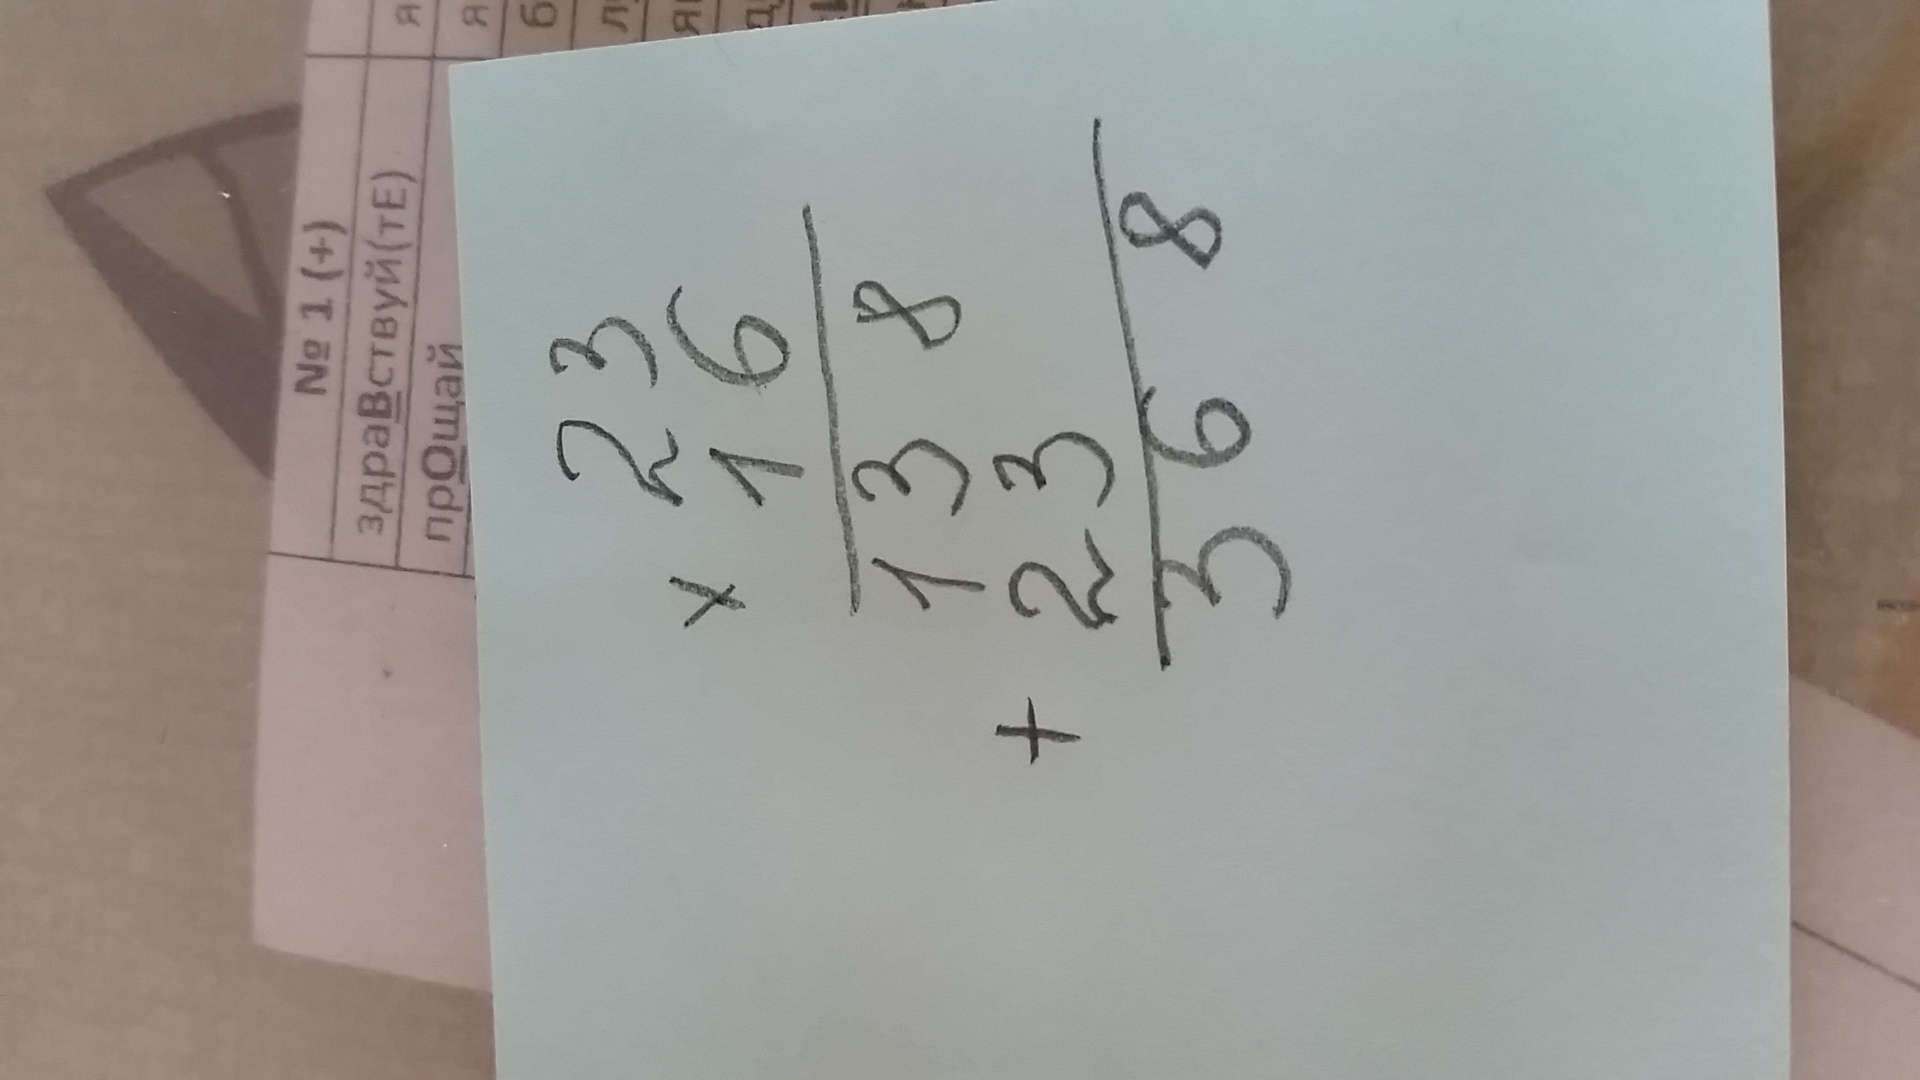 № 1 (+)
здраВствуй(тЕ)
прОщай
23
× 16
138
+ 23
368